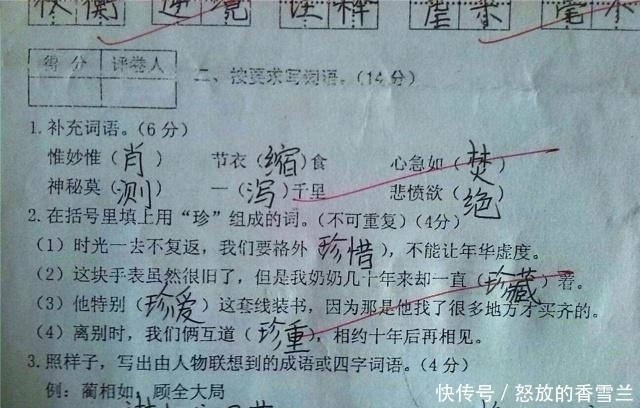 逆境 诠释
得分 评卷人
二、按要求写词语。(14分)
1.补充词语。(6分)
惟妙惟(肖) 节衣(缩)食 心急如(焚)
神秘莫(测) 一(泻)千里 悲愤欲(绝)
2.在括号里填上用“珍”组成的词。(不可重复)(4分)
(1)时光一去不复返，我们要格外(珍惜)，不能让年华虚度。
(2)这块手表虽然很旧了，但是我奶奶几十年来却一直(珍藏)着。
(3)他特别(珍爱)这套线装书，因为那是他找了很多地方才买齐的。
(4)离别时，我们俩互道(珍重)，相约十年后再相见。
3.照样子，写出由人物联想到的成语或四字词语。(4分)
例：蔺相如，顾全大局
快传号/怒放的香雪兰